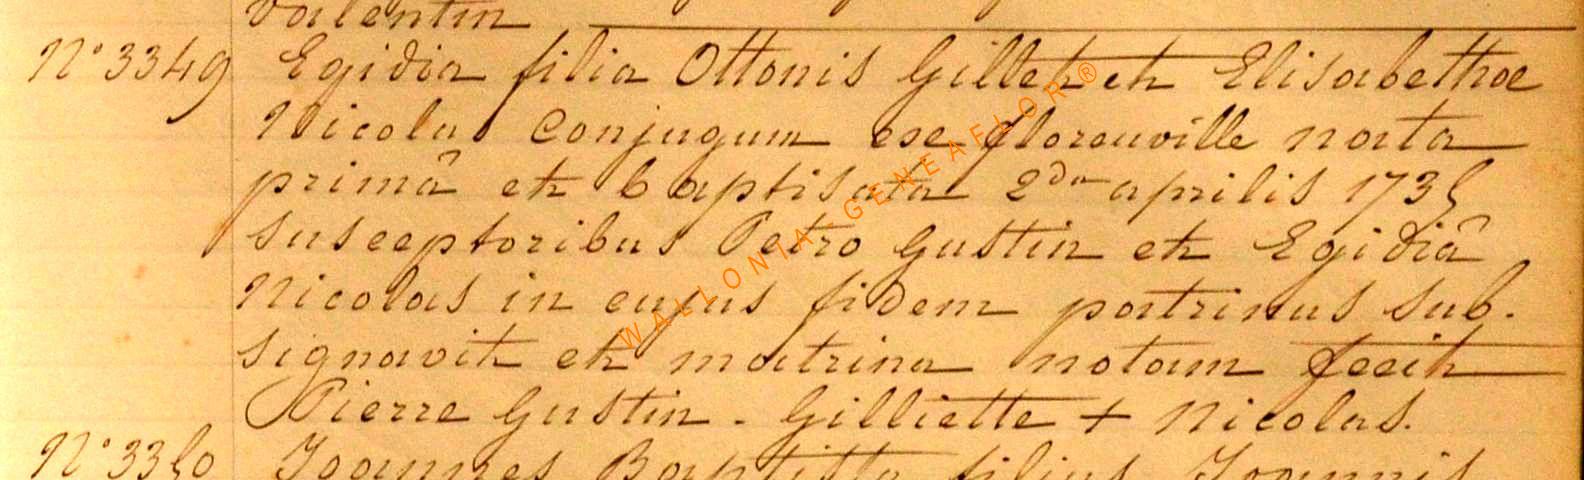 Valentin
N° 3349 Egidia filia Ottonis Gillet et Elisabethae
Nicolas conjugum ese florenville nata
primâ et baptisata 2da aprilis 1735
susceptoribus Petro Gustin et Egidiâ
Nicolas in cujus fidem patrinus sub-
signavit et matrina notam fecit
Pierre Gustin - Gilliette + Nicolas.
N° 3350 Joannes Baptista filius Joannis
WALLONIA-GENEAFLOR®